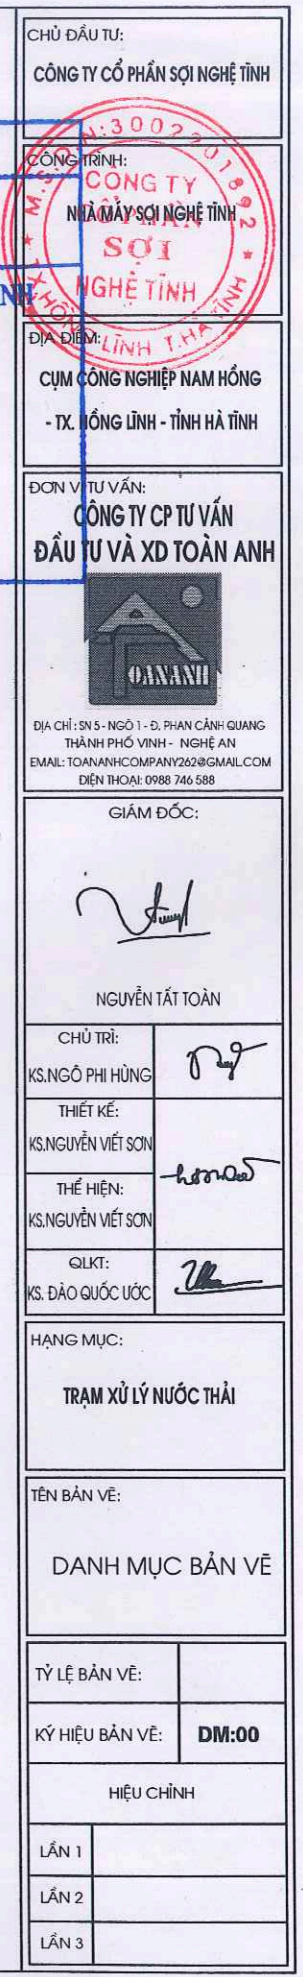 CHỦ ĐẦU TƯ:
CÔNG TY CỔ PHẦN SỢI NGHỆ TĨNH
CÔNG TRÌNH:
NHÀ MÁY SỢI NGHỆ TĨNH
M.S.D.N:3002201892
CÔNG TY
CỔ PHẦN
SỢI
NGHỆ TĨNH
T.X HỒNG LĨNH T.HÀ TĨNH
NH
ĐỊA ĐIỂM:
CỤM CÔNG NGHIỆP NAM HỒNG
- TX. HỒNG LĨNH - TỈNH HÀ TĨNH
ĐƠN VỊ TƯ VẤN:
CÔNG TY CP TƯ VẤN
ĐẦU TƯ VÀ XD TOÀN ANH
OANANH
ĐỊA CHỈ : SN 5 - NGÕ 1 - Đ. PHAN CẢNH QUANG
THÀNH PHỐ VINH - NGHỆ AN
EMAIL: TOANANHCOMPANY262@GMAIL.COM
ĐIỆN THOẠI: 0988 746 588
GIÁM ĐỐC:
NGUYỄN TẤT TOÀN
CHỦ TRÌ:
KS.NGÔ PHI HÙNG
THIẾT KẾ:
KS.NGUYỄN VIẾT SƠN
THỂ HIỆN:
KS.NGUYỄN VIẾT SƠN
QLKT:
KS. ĐÀO QUỐC ƯỚC
HẠNG MỤC:
TRẠM XỬ LÝ NƯỚC THẢI
TÊN BẢN VẼ:
DANH MỤC BẢN VẼ
TỶ LỆ BẢN VẼ:
KÝ HIỆU BẢN VẼ: DM:00
HIỆU CHỈNH
LẦN 1
LẦN 2
LẦN 3